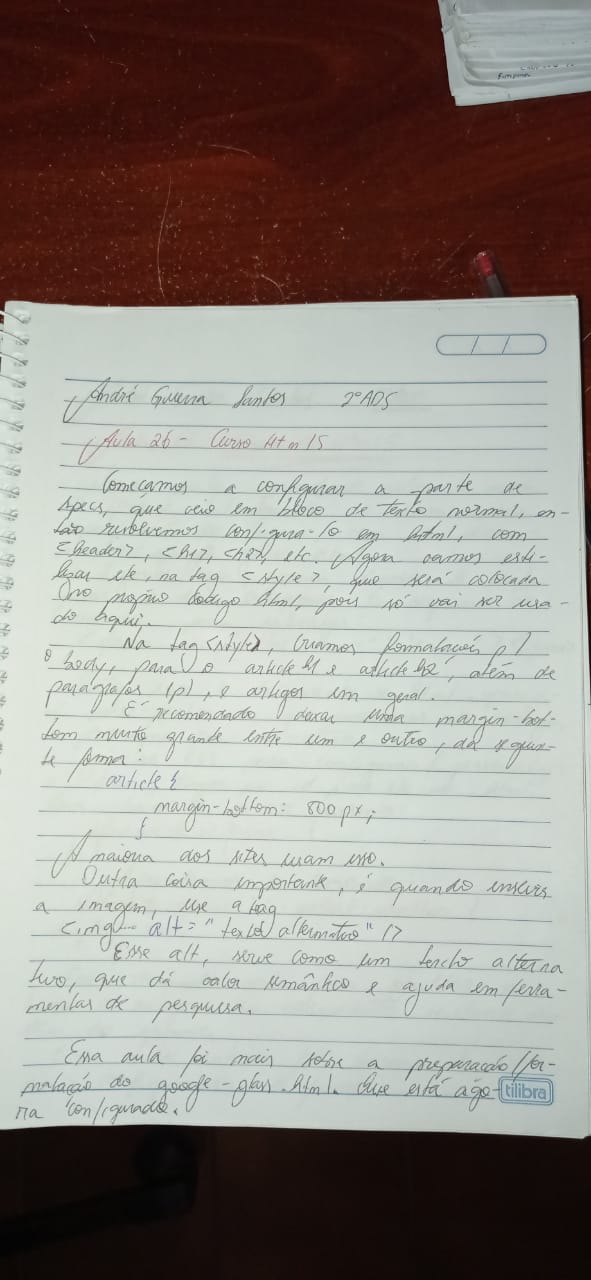 André Guerra Santos 2º ADS
Aula 26 - Curso Html5
Começamos a configurar a parte de
specs, que veio em bloco de texto normal, en-
tão resolvemos configura-lo em html, com
<header>, <h1>, <h2>, etc. Agora vamos esti-
lizar ele, na tag <style>, que será colocada
no próprio código html, pois só vai ser usa-
do aqui.
Na tag <style>, criamos formatações p/
o body, para o article h1 e article h2, além de
parágrafos (p), e artigos em geral.
É recomendado deixar uma margin-bot-
tom muito grande entre um e outro, da seguin-
te forma:
article {
margin-bottom: 800px;
}
A maioria dos sites usam isso.
Outra coisa importante, é quando inserir
a imagem, use a tag
<img... alt="texto alternativo"/>
Esse alt, serve como um texto alterna
tivo, que dá valor semântico e ajuda em ferra-
mentas de pesquisa.
Essa aula foi mais sobre a preparação/for-
matação do google-glass.html. Que está ago-
ra configurado.
tilibra